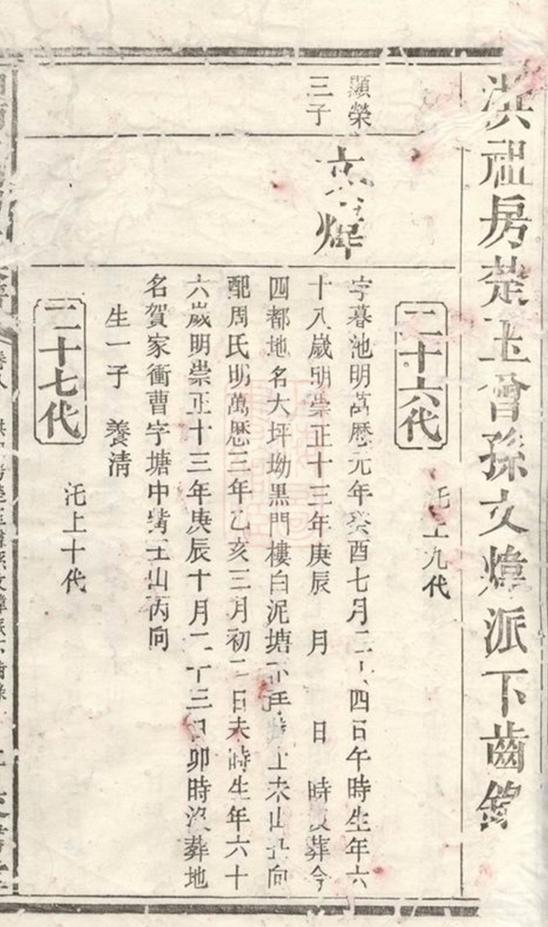 淇祖房楚玉會孫文煒派下齒錄
二十六代
沱上九代
顯榮
三子
文煒
字暮池明萬歷元年癸酉七月二十四日午時生年六
十八歲明崇正十三年庚辰 月 日 時沒葬今
四都地名大坪坳黒門樓白泥塘 未山丑向
配周氏明萬歷三年乙亥三月初二日未時生年六十
六歲明崇正十三年庚辰十月二十三日卯時沒葬地
名賀家衝曹字塘中 壬山丙向
生一子 養清
二十七代
沱上十代